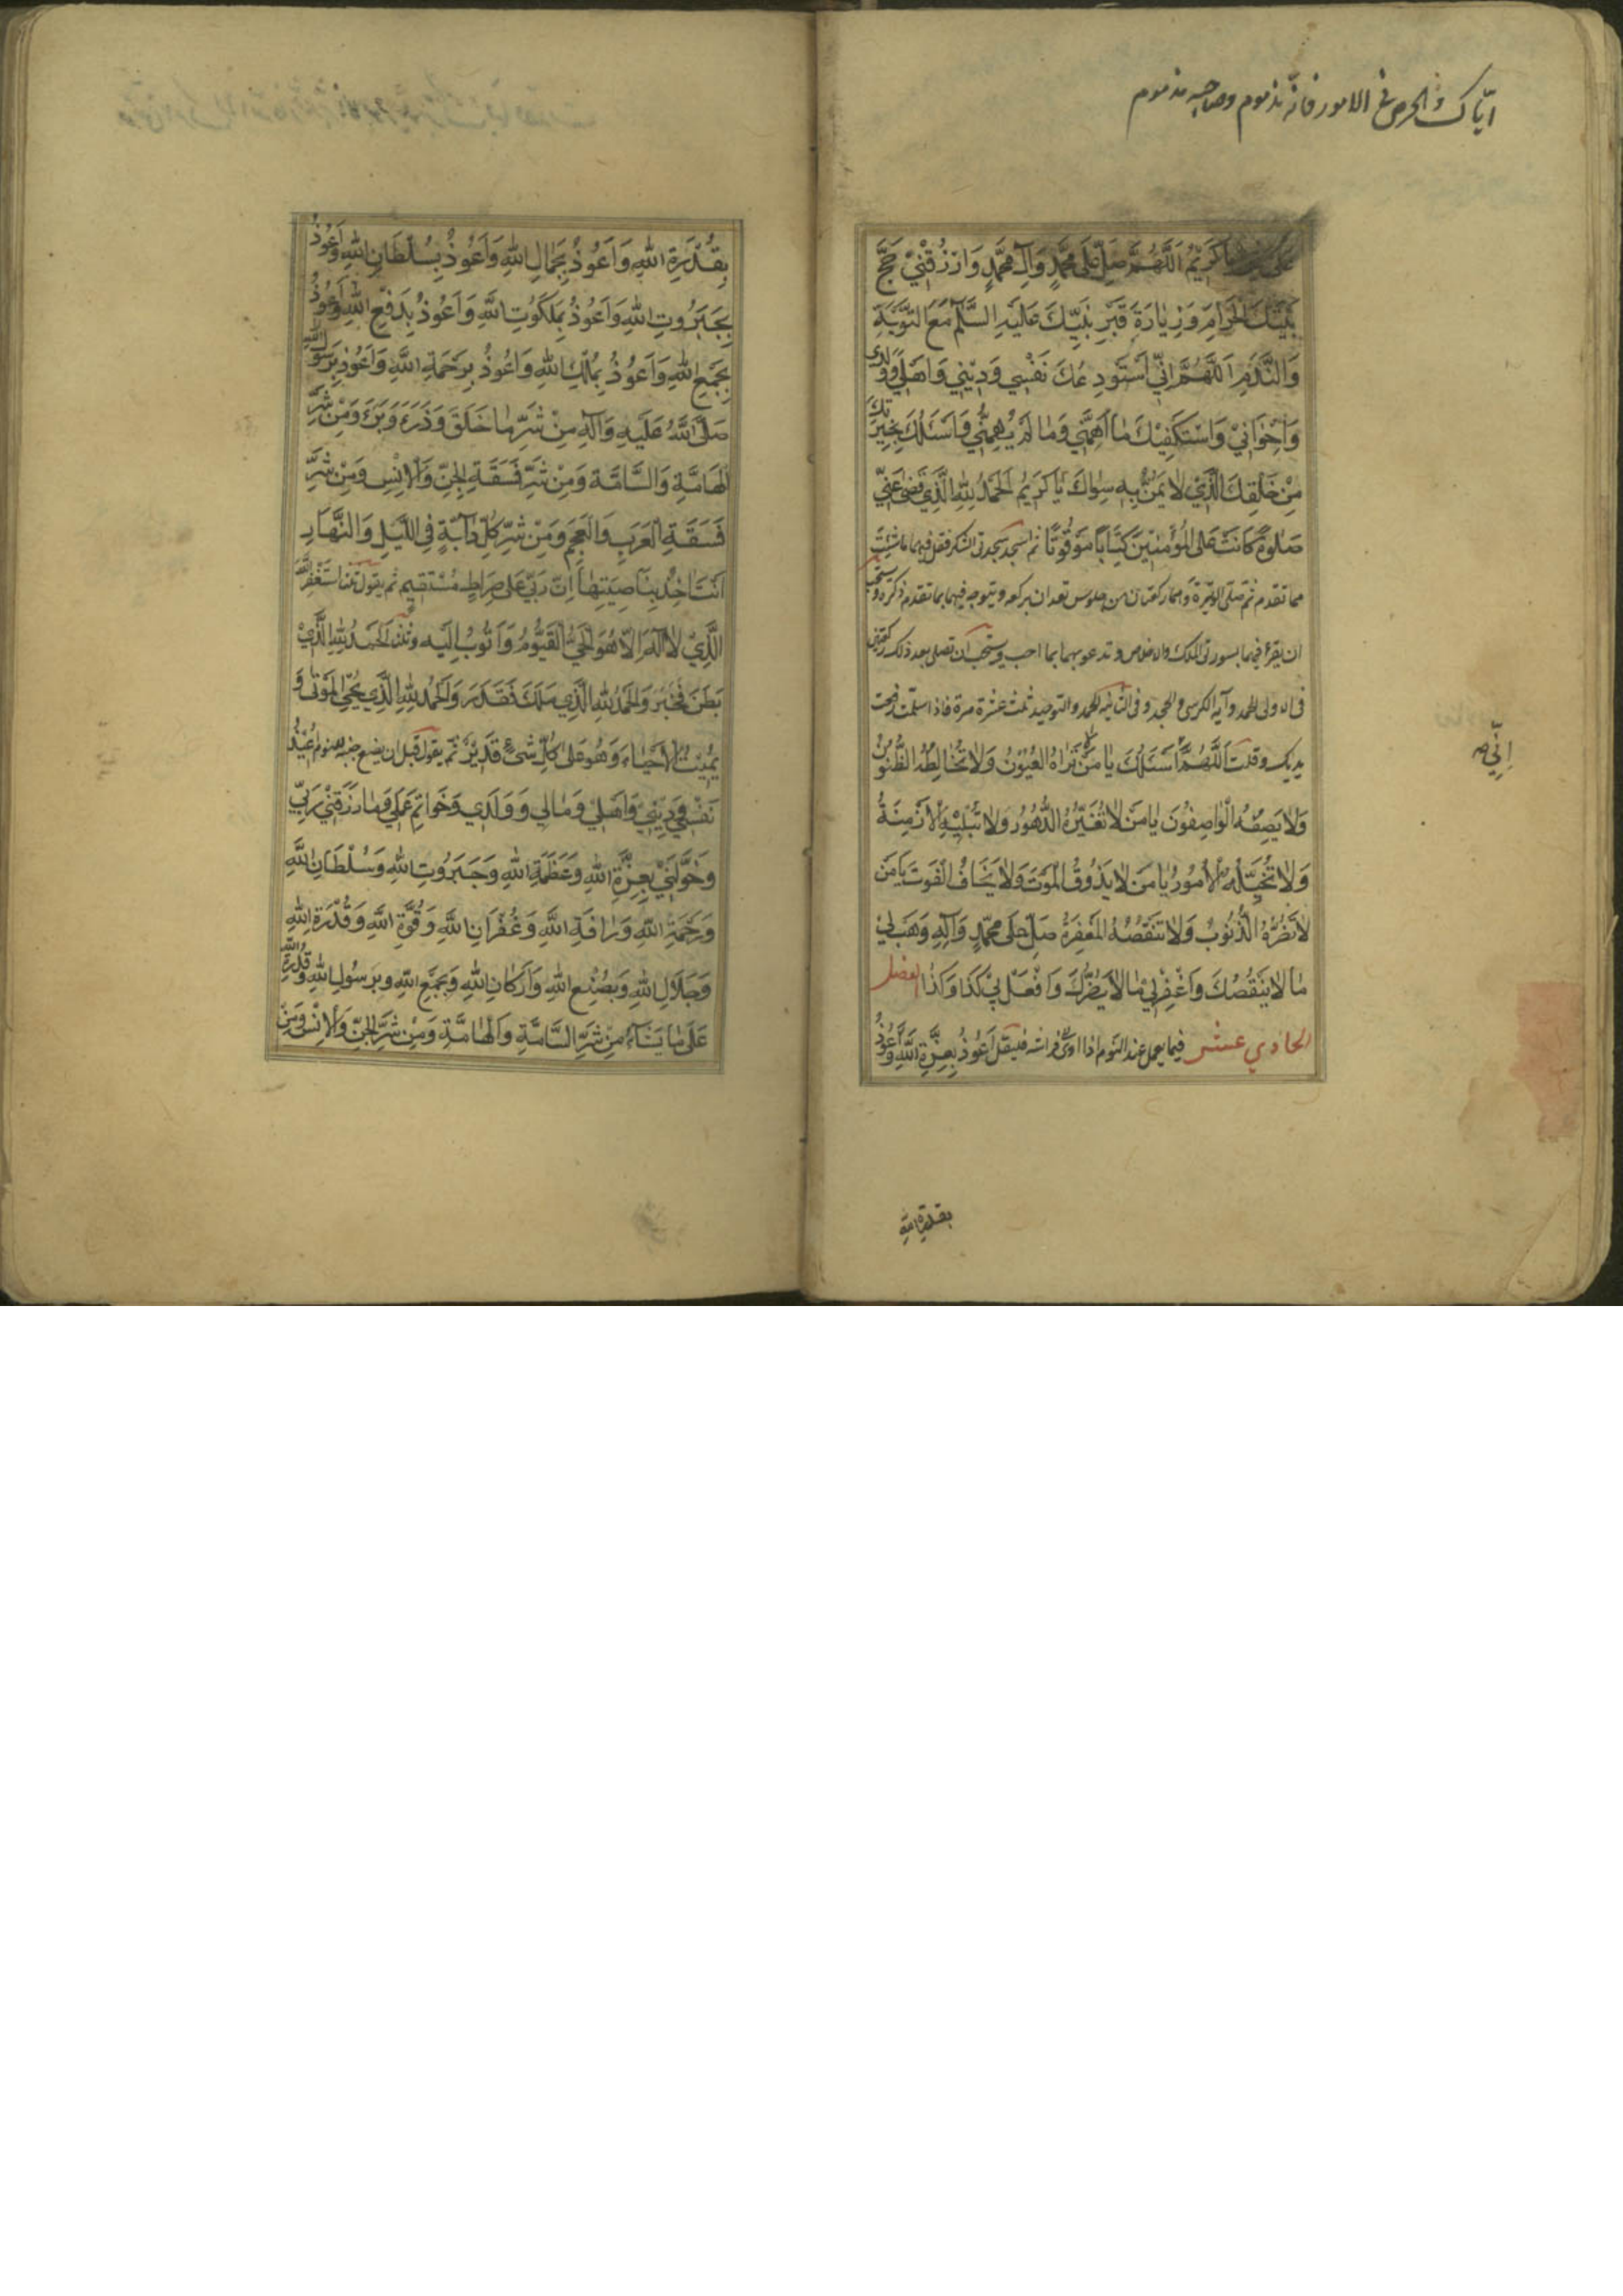 ايّاك والحرص فى الامور فانّه مذموم وصاحبه مذموم
يَا كَرِيمُ اَللَّهُمَّ صَلِّ عَلَى مُحَمَّدٍ وَآلِ مُحَمَّدٍ وَارْزُقْنِي حَجَّ
بَيْتِكَ الْحَرَامِ وَزِيَارَةَ قَبْرِ نَبِيِّكَ عَلَيْهِ السَّلَمُ مَعَ التَّوْبَةِ
وَالنَّدَمِ اَللَّهُمَّ اِنِّي اَسْتَوْدِعُكَ نَفْسِي وَدِينِي وَاَهْلِي وَوُلْدِي
وَاِخْوَانِي وَاَسْتَكْفِيكَ مَا اَهَمَّنِي وَمَا لَمْ يُهِمَّنِي وَاَسْئَلُكَ بِخِيَرَتِكَ
مِنْ خَلْقِكَ الَّذِي لَا يَمُنُّ بِهِ سِوَاكَ يَا كَرِيمُ اَلْحَمْدُ لِلَّهِ الَّذِي قَضَى عَنِّي
صَلٰوةً كَانَتْ عَلَى الْمُؤْمِنِينَ كِتَابًا مَوْقُوتًا ثم اسجد سجدتى الشكر فقل فيهما ما شئت
مما تقدم ثم تصلى الوتيرة وهما ركعتان من جلوس تعدان بركعه ويتوجه فيهما بما تقدم ذكره ويستحب
ان يقرء فيهما بسورتى الملك والاخلاص وتدعو بهما بما احب ويستحب ان تصلى بعد ذلك ركعتين
فى الاولى الحمد وآية الكرسى والجحد وفى الثانية الحمد والتوحيد ثلث عشرة مرة فاذا سلمت رفعت
يديك وقلت اَللَّهُمَّ اَسْئَلُكَ يَا مَنْ لَا تَرَاهُ الْعُيُونُ وَلَا تُخَالِطُهُ الظُّنُونُ
اِنِّي صح
وَلَا يَصِفُهُ الْوَاصِفُونَ يَا مَنْ لَا تُغَيِّرُهُ الدُّهُورُ وَلَا تُبْلِيهِ الْاَزْمِنَةُ
وَلَا تُحِيلُهُ الْاُمُورُ يَا مَنْ لَا يَذُوقُ الْمَوْتَ وَلَا يَخَافُ الْفَوْتَ يَا مَنْ
لَا تَضُرُّهُ الذُّنُوبُ وَلَا تَنْقُصُهُ الْمَغْفِرَةُ صَلِّ عَلَى مُحَمَّدٍ وَآلِهِ وَهَبْ لِي
مَا لَا يَنْقُصُكَ وَاغْفِرْ لِي مَا لَا يَضُرُّكَ وَافْعَلْ بِي كَذَا وَكَذَا الفصل
الحادي عشر فيما يعمل عند النوم اذا اوى الى فراشه فليقل اَعُوذُ بِعِزَّةِ اللَّهِ وَاَعُوذُ
بقدرة الله
بِقُدْرَةِ اللَّهِ وَاَعُوذُ بِجَمَالِ اللَّهِ وَاَعُوذُ بِسُلْطَانِ اللَّهِ وَاَعُوذُ
بِجَبَرُوتِ اللَّهِ وَاَعُوذُ بِمَلَكُوتِ اللَّهِ وَاَعُوذُ بِدَفْعِ اللَّهِ وَاَعُوذُ
بِجَمْعِ اللَّهِ وَاَعُوذُ بِمُلْكِ اللَّهِ وَاَعُوذُ بِرَحْمَةِ اللَّهِ وَاَعُوذُ بِرَسُولِ اللَّهِ
صَلَّى اللَّهُ عَلَيْهِ وَآلِهِ مِنْ شَرِّ مَا خَلَقَ وَذَرَءَ وَبَرَءَ وَمِنْ شَرِّ
الْهَامَّةِ وَالسَّامَّةِ وَمِنْ شَرِّ فَسَقَةِ الْجِنِّ وَالْاِنْسِ وَمِنْ شَرِّ
فَسَقَةِ الْعَرَبِ وَالْعَجَمِ وَمِنْ شَرِّ كُلِّ دَآبَّةٍ فِي اللَّيْلِ وَالنَّهَارِ
اَنْتَ آخِذٌ بِنَاصِيَتِهَا اِنَّ رَبِّي عَلَى صِرَاطٍ مُسْتَقِيمٍ ثم يقول ثلثا اَسْتَغْفِرُ اللَّهَ
الَّذِي لَا اِلٰهَ اِلَّا هُوَ الْحَيُّ الْقَيُّومُ وَاَتُوبُ اِلَيْهِ وثلثا اَلْحَمْدُ لِلَّهِ الَّذِي
بَطَنَ فَخَبَرَ وَالْحَمْدُ لِلَّهِ الَّذِي مَلَكَ فَقَدَرَ وَالْحَمْدُ لِلَّهِ الَّذِي يُحْيِي الْمَوْتَى وَ
يُمِيتُ الْاَحْيَاءَ وَهُوَ عَلَى كُلِّ شَيْءٍ قَدِيرٌ ثم يقول قبل ان يضع جنبه للنوم اُعِيذُ
نَفْسِي وَدِينِي وَاَهْلِي وَمَالِي وَوَلَدِي وَخَوَاتِمَ عَمَلِي وَمَا رَزَقَنِي رَبِّي
وَخَوَّلَنِي بِعِزَّةِ اللَّهِ وَعَظَمَةِ اللَّهِ وَجَبَرُوتِ اللَّهِ وَسُلْطَانِ اللَّهِ
وَرَحْمَةِ اللَّهِ وَرَافَةِ اللَّهِ وَغُفْرَانِ اللَّهِ وَقُوَّةِ اللَّهِ وَقُدْرَةِ اللَّهِ
وَجَلَالِ اللَّهِ وَبِصُنْعِ اللَّهِ وَاَرْكَانِ اللَّهِ وَبِجَمْعِ اللَّهِ وَبِرَسُولِ اللَّهِ وَقُدْرَةِ اللَّهِ
عَلَى مَا يَشَآءُ مِنْ شَرِّ السَّامَّةِ وَالْهَامَّةِ وَمِنْ شَرِّ الْجِنِّ وَالْاِنْسِ وَمِنْ